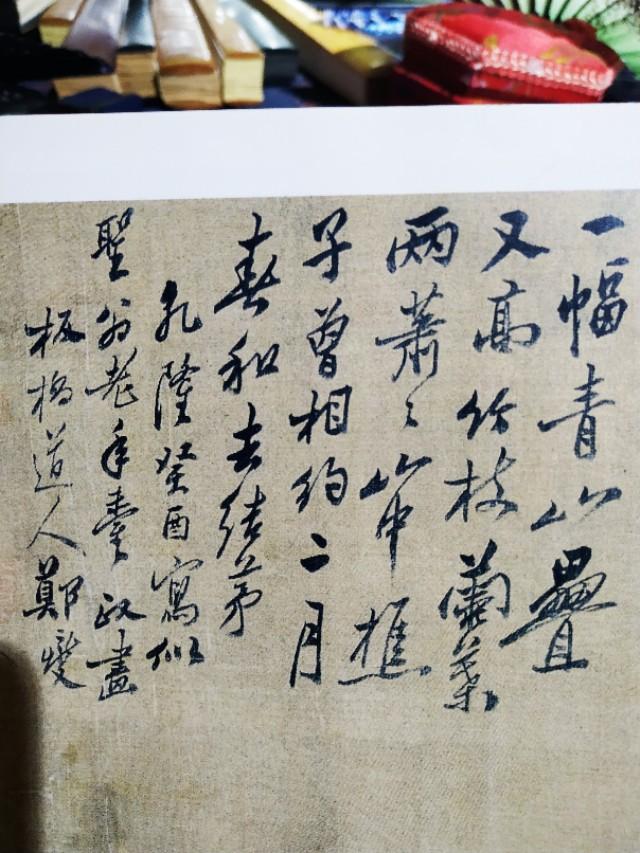 一幅青山疊
又高竹枝蘭葉
两蕭〻山中樵
子曾相約二月
春和去結茅
乹隆癸酉寫似
聖翁老年臺政畫
板橋道人鄭燮